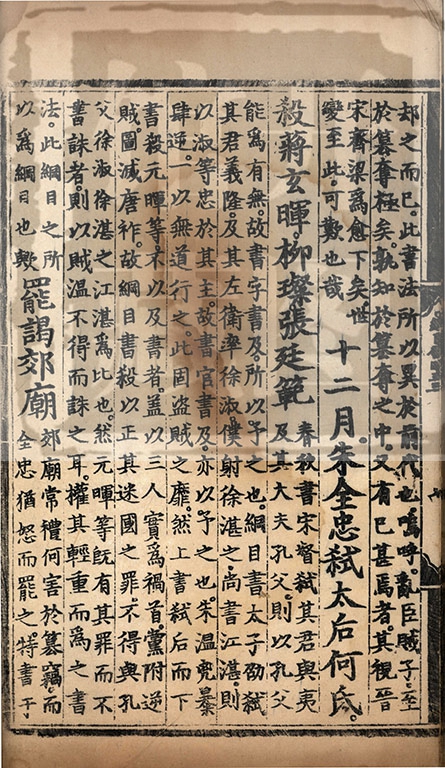 却之而已。此書法所以異於前代也。嗚呼。亂臣賊子。至
於簒奪極矣。孰知於簒奪之中。又有已甚焉者。其視晉
宋齊梁爲愈下矣。世
變至此。可歎也哉
十二月。朱全忠弑太后何氏。
殺蔣玄暉柳璨張廷範
春秋書宋督弑其君與夷
及其大夫孔父。則以孔父
能爲有無。故書字書及。所以予之也。綱目書太子劭弑
其君義隆。及其左衛率徐淑僕射徐湛之。尚書江湛。則
以淑等忠於其主。故書官書及。亦以予之也。朱溫兇暴
肆逆。一以無道行之。此固盜賊之靡。然上書弑后而下
書殺元暉等。不以及書者。蓋以三人實爲禍首。黨附逆
賊。圖滅唐祚。故綱目書殺以正其迷國之罪。不得與孔
父徐淑徐湛之江湛爲比也。然元暉等旣有其罪而不
書誅者。則以賊溫不得而誅之耳。權其輕重而爲之書
法。此綱目之所
以爲綱目也歟
罷謁郊廟
郊廟常禮何害於簒竊。而
全忠猶怒而罷之。特書于